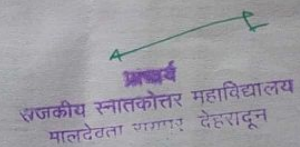 प्राचार्य
राजकीय स्नातकोत्तर महाविद्यालय
मालदेवता रायपुर देहरादून